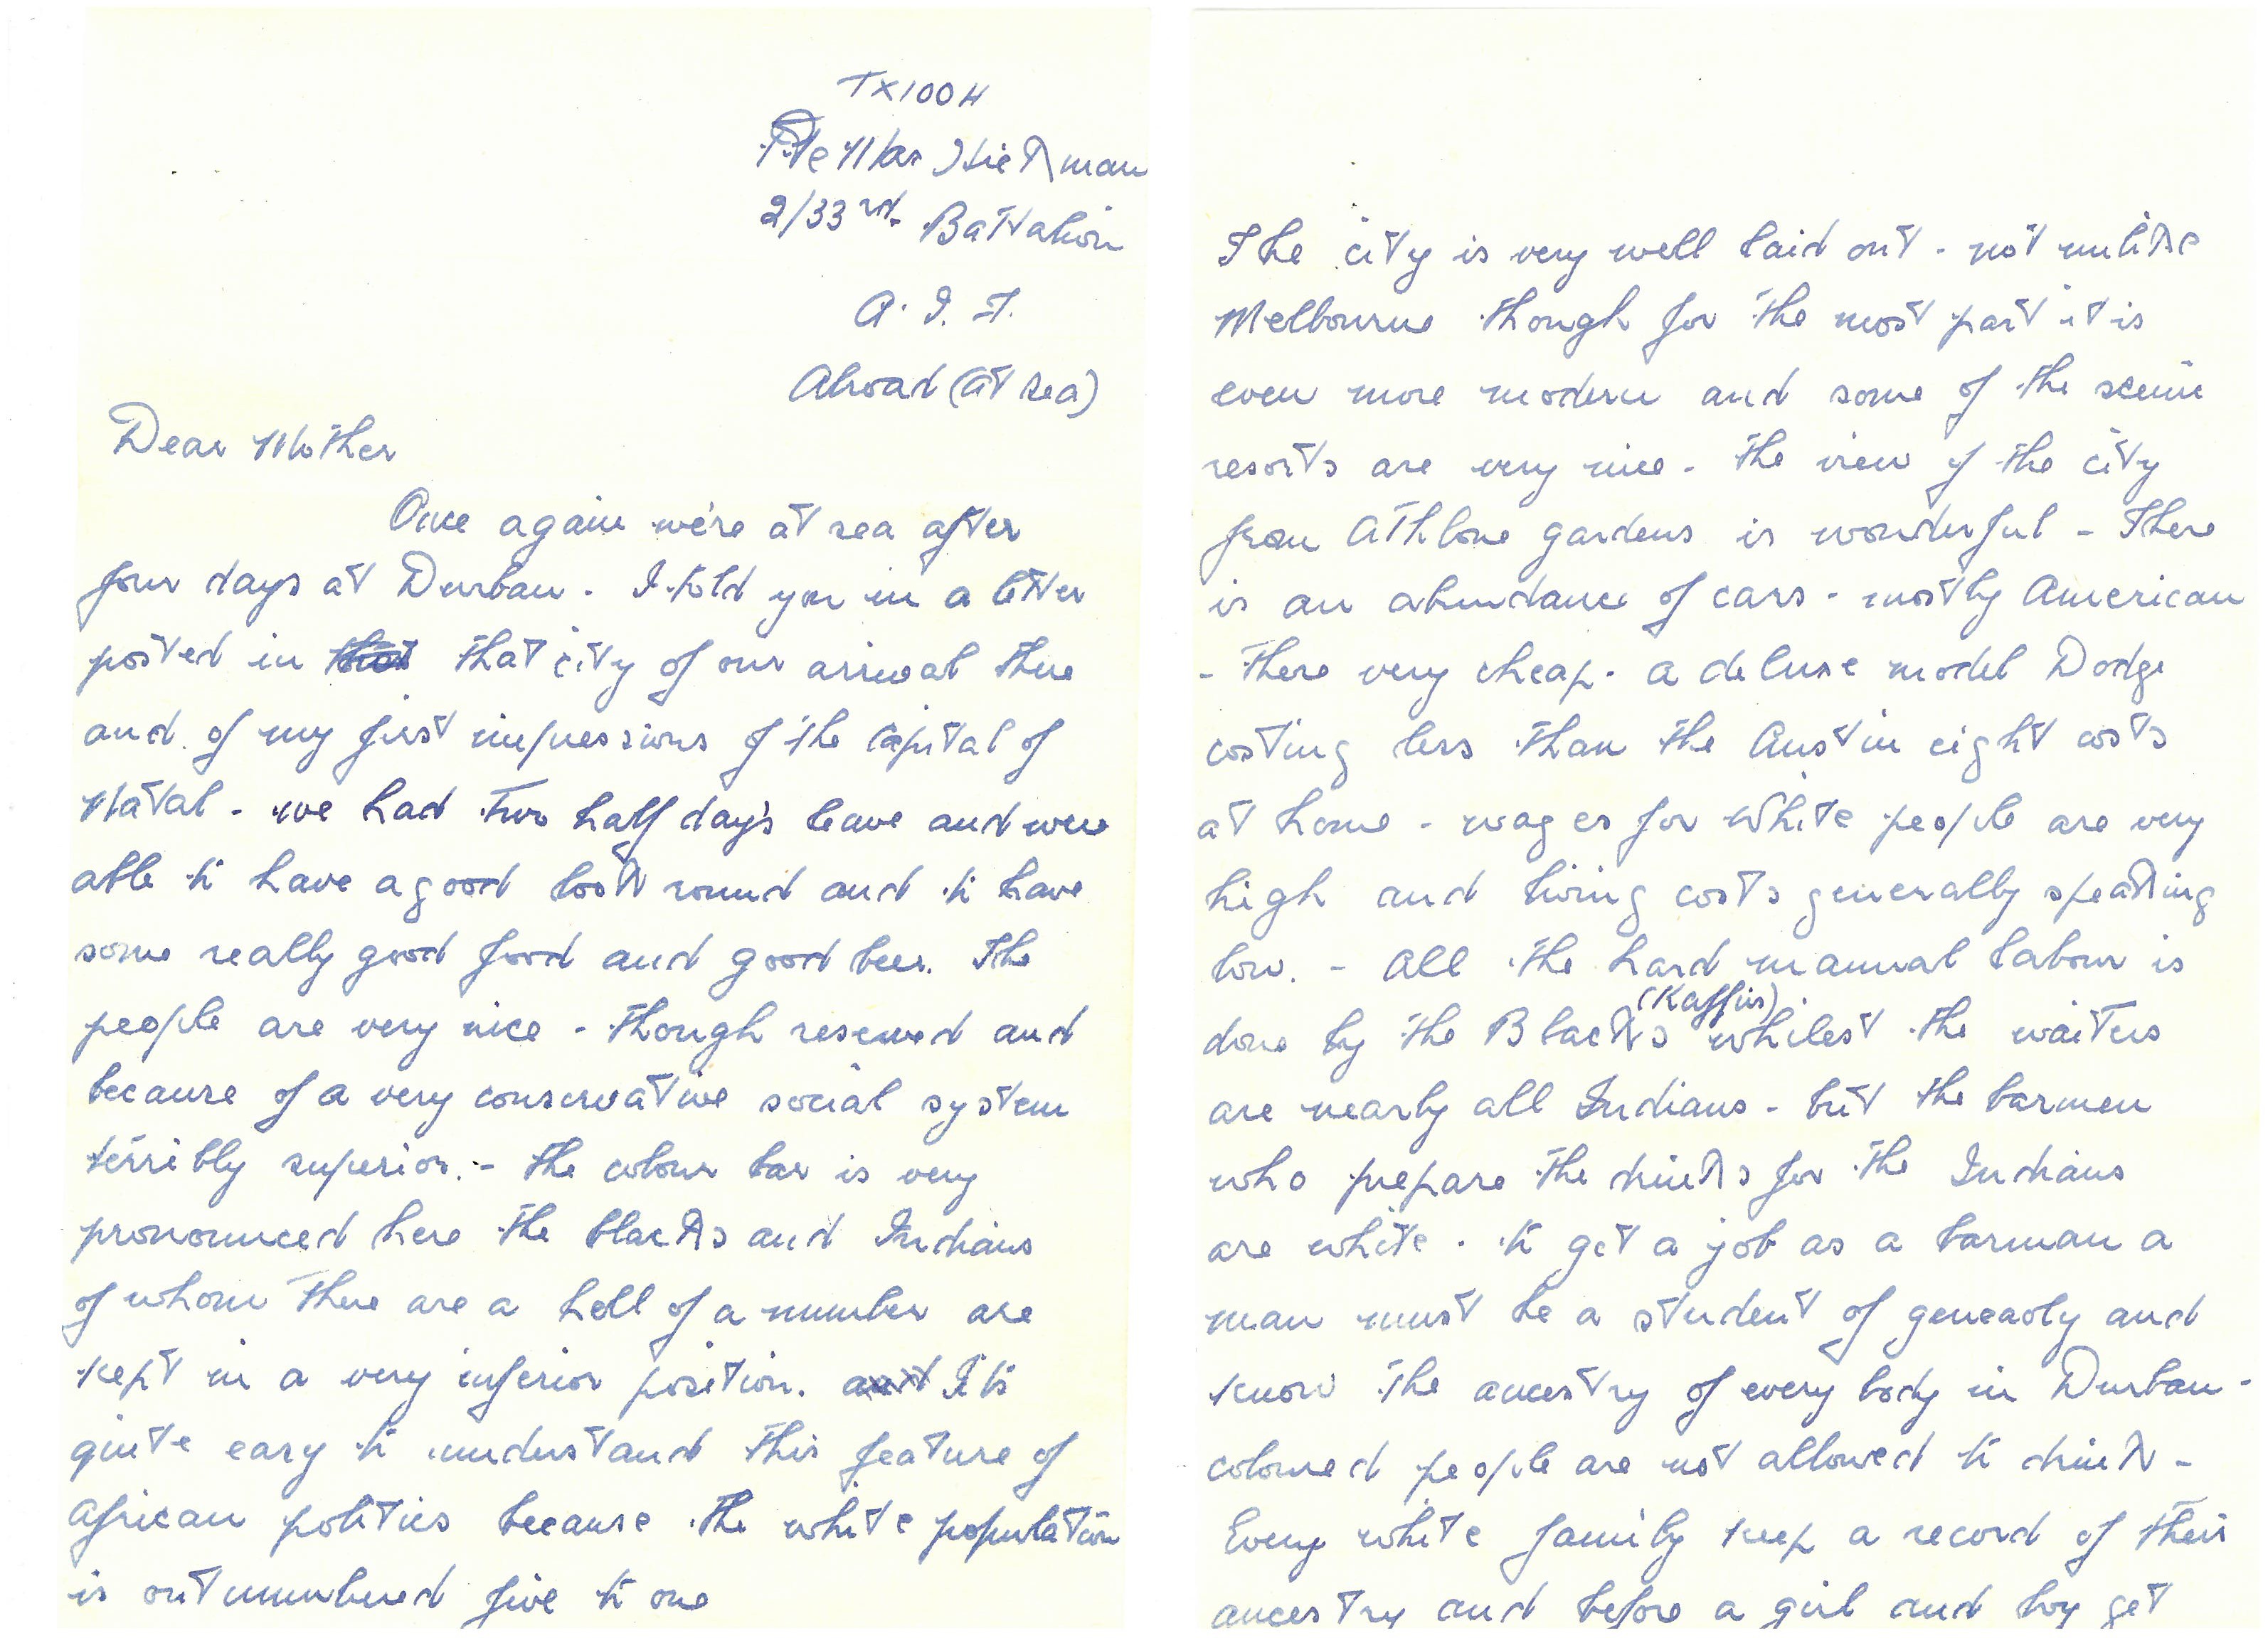 TX1004
Pte Max Hickman
2/33rd. Battalion
A. I. F.
Abroad (at sea)
Dear Mother
Once again we're at sea after
four days at Durban. I told you in a letter
posted in that city of our arrival there
and of my first impressions of the Capital of
Natal - we had two half day's leave and were
able to have a good look round and to have
some really good food and good beer. The
people are very nice - though reserved and
because of a very conservative social system
terribly superior. - the colour bar is very
pronounced here the blacks and Indians
of whom there are a hell of a number are
kept in a very inferior position. and It is
quite easy to understand this feature of
African politics because the white population
is outnumbered five to one
The city is very well laid out - not unlike
Melbourne though for the most part it is
even more modern and some of the scenic
resorts are very nice - the view of the city
from Athlone gardens is wonderful - There
is an abundance of cars - mostly American
- there very cheap - a deluxe model Dodge
costing less than the Austin eight costs
at home - wages for White people are very
high and living costs generally speaking
low. - All the hard manual labour is
done by the Blacks (Kaffirs) whilest the waiters
are nearly all Indians - but the barmen
who prepare the drinks for the Indians
are white - to get a job as a barman a
man must be a student of geneaoly and
know the ancestry of every body in Durban -
coloured people are not allowed to drink -
Every white family keep a record of their
ancestry and before a girl and boy get